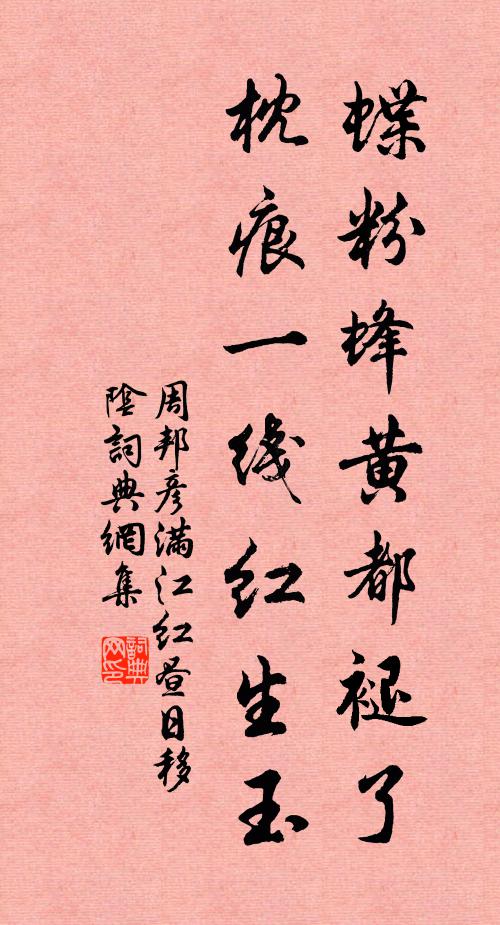 蝶粉蜂黄都褪了
枕痕一线红生玉
周邦彦滿江红昼日移
陰詞典網集
詞典
网印